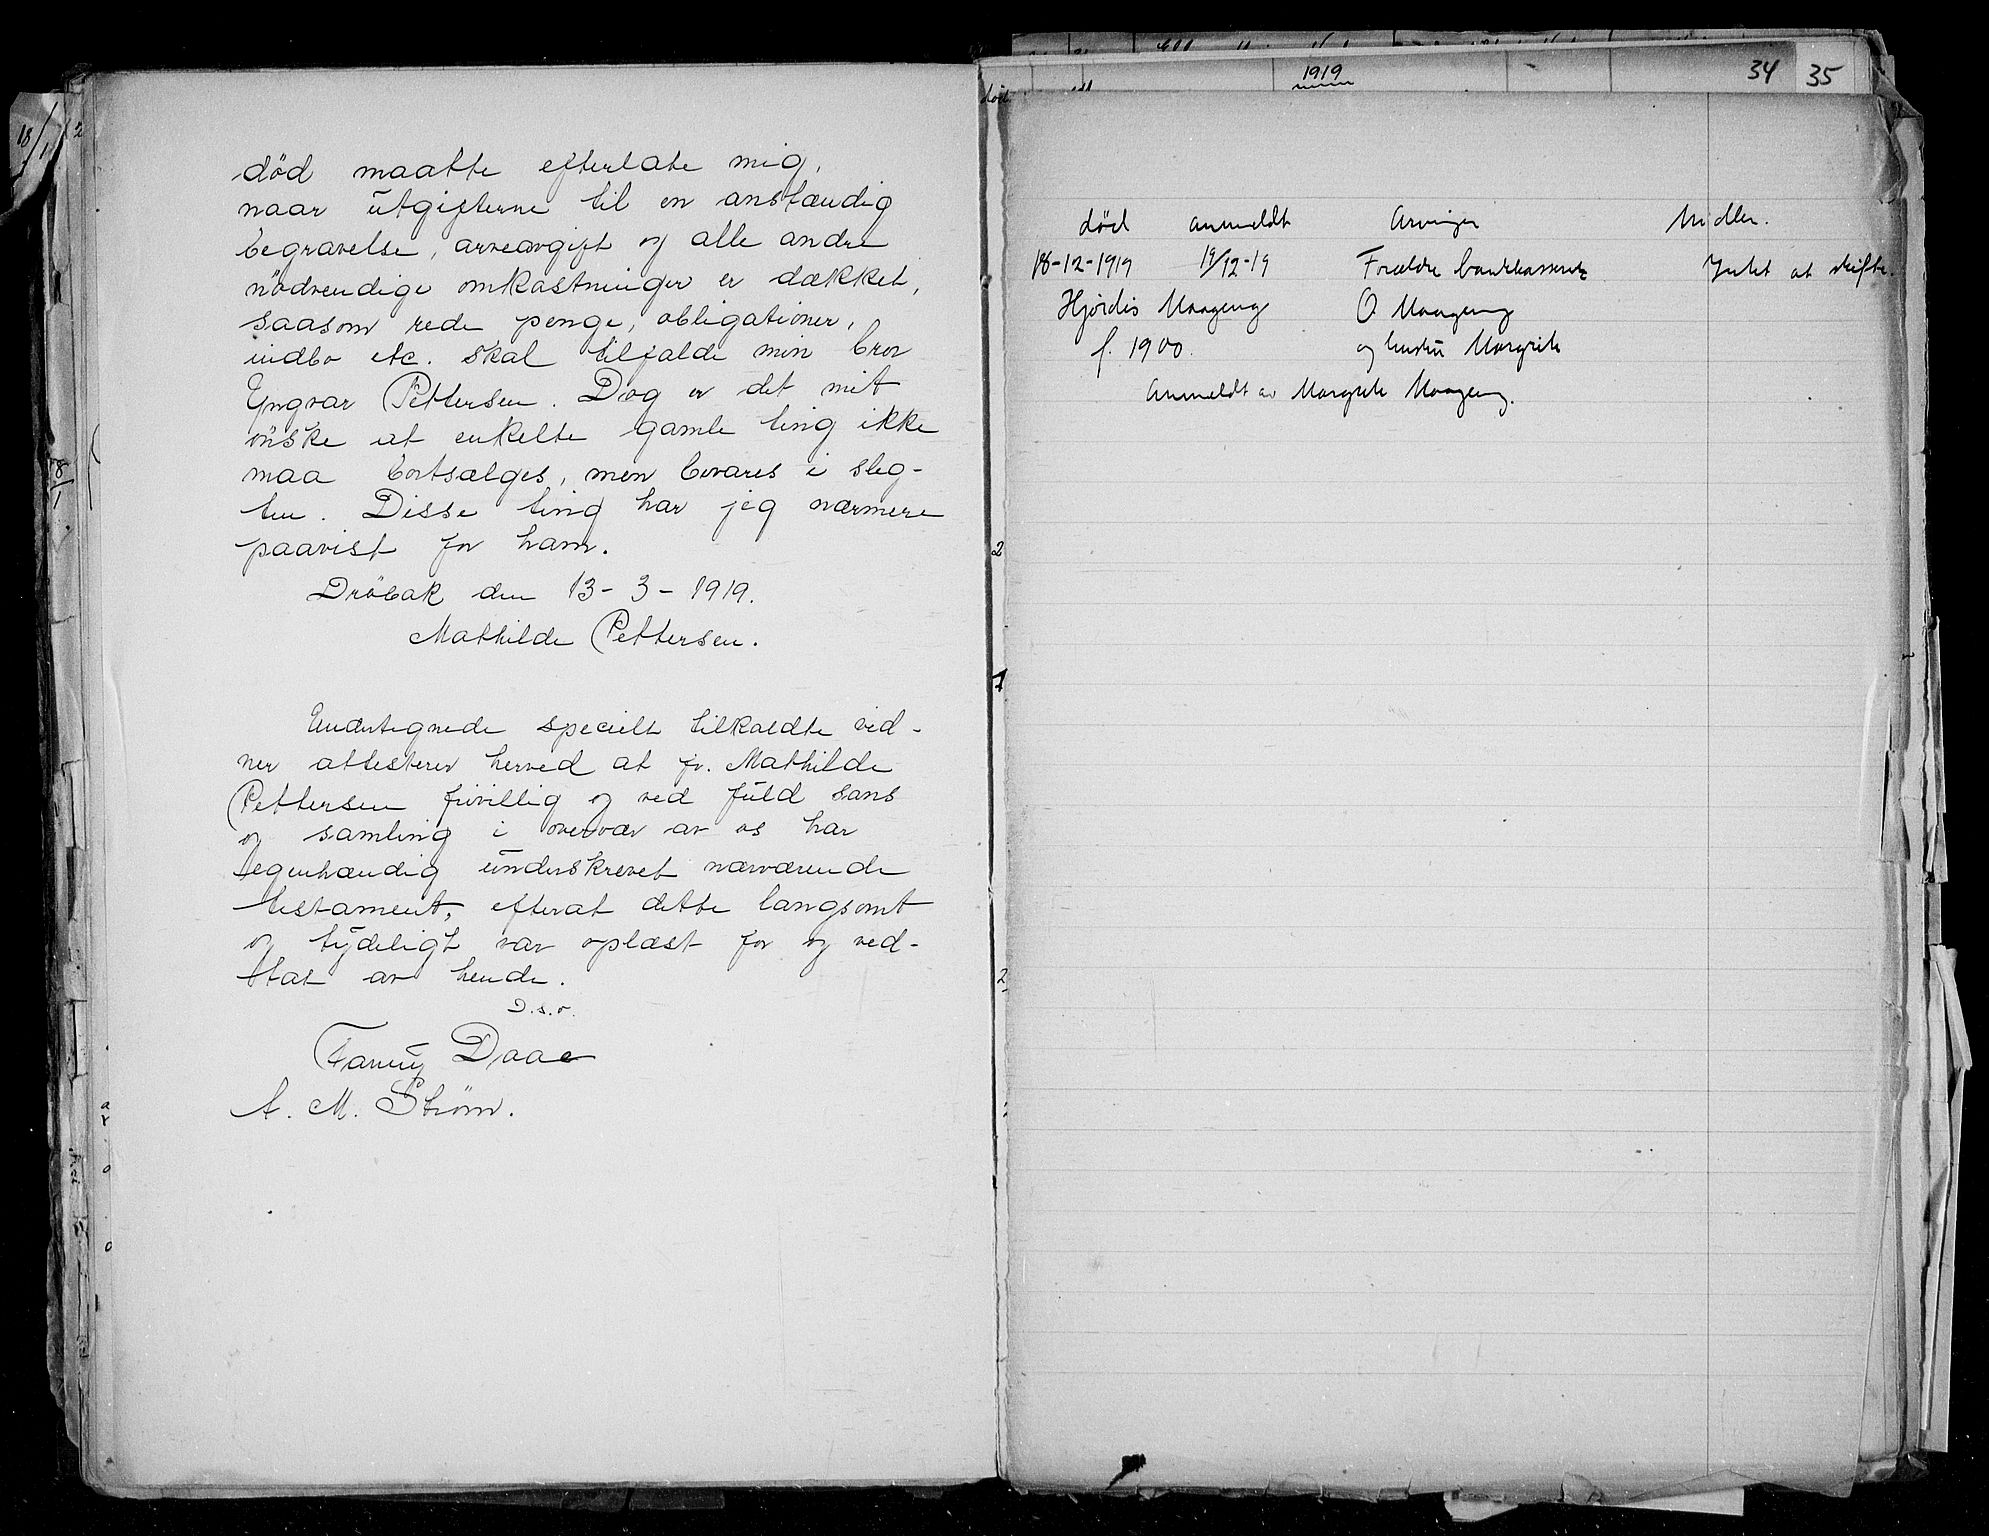 død maatte efterlate mig,
naar utgifterne til en anstændig
begravelse, arveavgift og alle andre
nødvendige omkostninger er dækket,
saasom rede penge, obligationer,
indbo etc. skal tilfalde min bror
Yngvar Pettersen. Dog er det mit
ønske at enkelte gamle ting ikke
maa bortsælges, men bevares i sleg-
ten. Disse ting har jeg nærmere
paavist for ham.
Drøbak den 13-3-1919.
Mathilde Pettersen.
Undertegnede specielt tilkaldte vid-
ner attesterer herved at fr. Mathilde
Pettersen frivillig og ved fuld sans
og samling i overvær av os har
egenhændig underskrevet nærværende
testament, efterat dette langsomt
og tydeligt var oplæst for og ved-
tat av hende.
D.s.o.
Fanny Daae
A. M. Strøm.
1919
34 35
død anmeldt Arvinger Midler.
18-12-1919 19/12-19 Forældre bankkasserer Intet at skifte.
Hjørdis Maageng O. Maageng
f. 1900. og hustru Margrete
Anmeldt av Margrete Maageng.